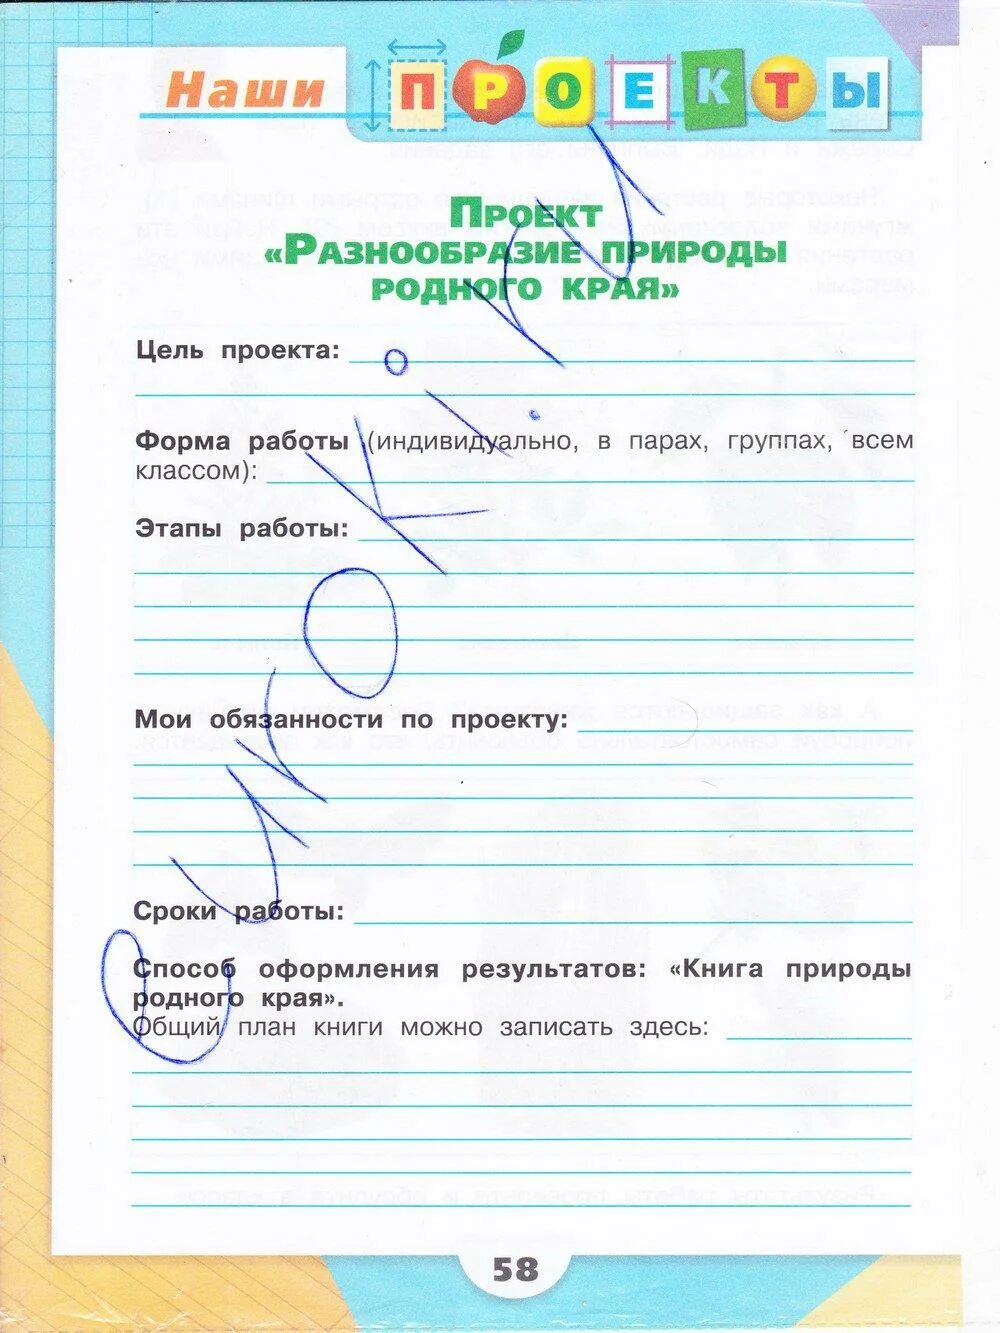 Наши ПРОЕКТЫ
ПРОЕКТ
«РАЗНООБРАЗИЕ ПРИРОДЫ
РОДНОГО КРАЯ»
Цель проекта:
Форма работы (индивидуально, в парах, группах, всем
классом):
Этапы работы:
Мои обязанности по проекту:
Сроки работы:
Способ оформления результатов: «Книга природы
родного края».
Общий план книги можно записать здесь:
58